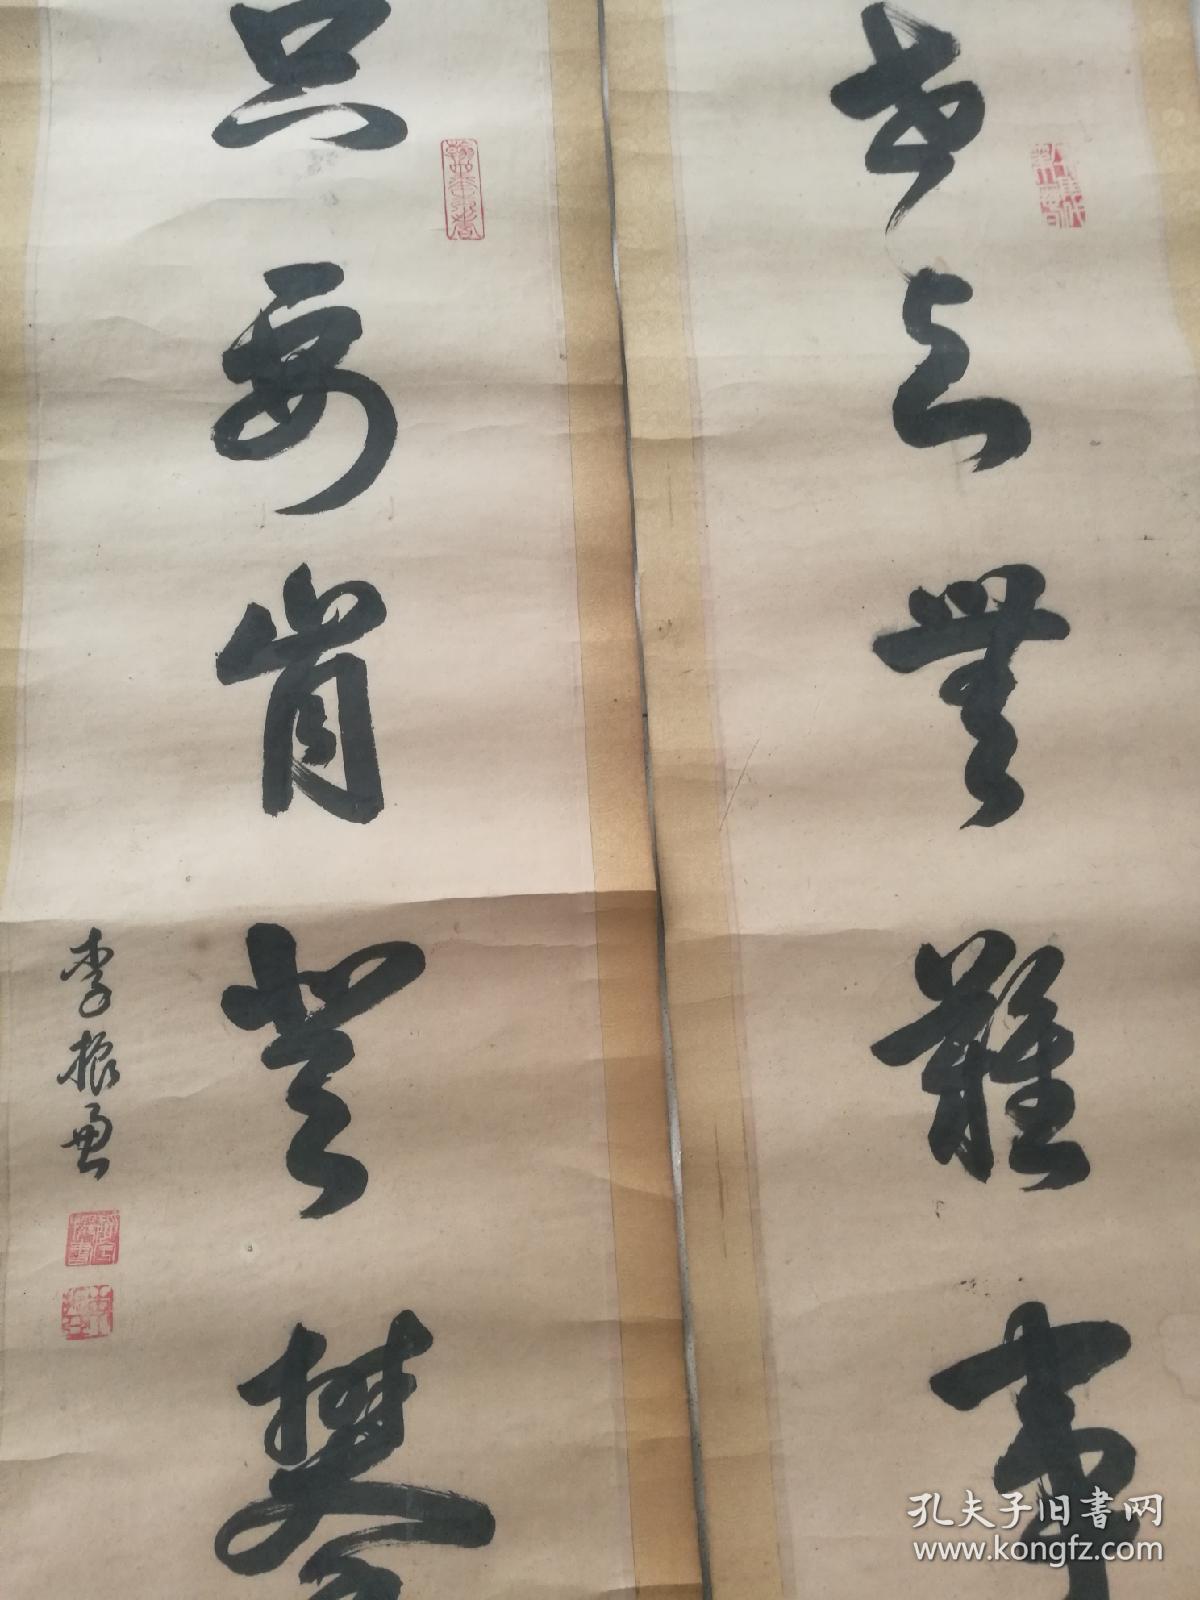 世上無難事
只要肯登攀
李振盈
孔夫子旧书网
www.kongfz.com